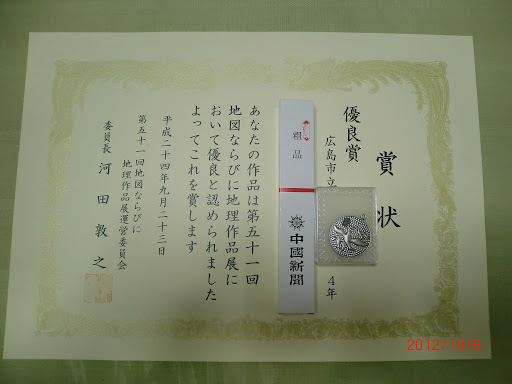 賞状
優良賞
広島市立
4年
粗品
中國新聞
あなたの作品は第五十一回
地図ならびに地理作品展に
おいて優良と認められました
よってこれを賞します
平成二十四年九月二十三日
第五十一回地図ならびに
地理作品展運営委員会
委員長 河田敦之
2012/10/6